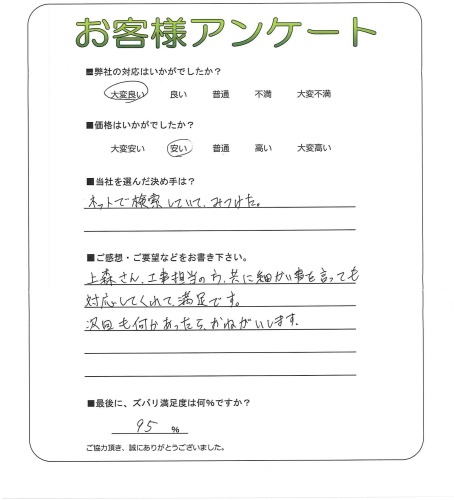 お客様アンケート
■弊社の対応はいかがでしたか？
大変良い 良い 普通 不満 大変不満
■価格はいかがでしたか？
大変安い 安い 普通 高い 大変高い
■当社を選んだ決め手は？
ネットで検索していて、みつけた。
■ご感想・ご要望などをお書き下さい。
上森さん、工事担当の方、共に細かい事を言っても
対応してくれて、満足です。
次回も何かあったら、おねがいします。
■最後に、ズバリ満足度は何%ですか？
95 %
ご協力頂き、誠にありがとうございました。